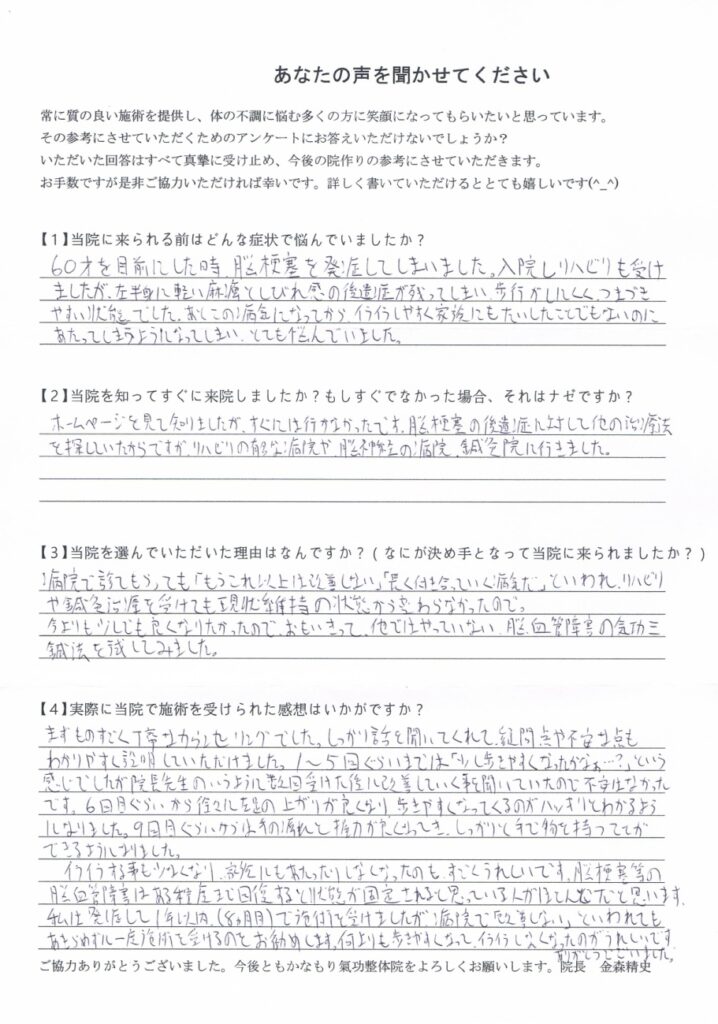 あなたの声を聞かせてください
常に質の良い施術を提供し、体の不調に悩む多くの方に笑顔になってもらいたいと思っています。
その参考にさせていただくためのアンケートにお答えいただけないでしょうか？
いただいた回答はすべて真摯に受け止め、今後の院作りの参考にさせていただきます。
お手数ですが是非ご協力いただければ幸いです。詳しく書いていただけるととても嬉しいです(^_^)
【1】当院に来られる前はどんな症状で悩んでいましたか？
60才を目前にした時、脳梗塞を発症してしまいました。入院しリハビリも受け
ましたが、左半身に軽い麻痺としびれ感の後遺症が残ってしまい、歩行がしにくく、つまづき
やすい状態でした。あとこの病気になってから イライラしやすく家族にもたいしたことでもないのに
あたってしまうようになってしまい、とても悩んでいました。
【2】当院を知ってすぐに来院しましたか？もしすぐでなかった場合、それはナゼですか？
ホームページを見て知りましたが、すぐには行かなかったです。脳梗塞の後遺症に対して他の治療法
を探していたからですが、リハビリの有名な病院や、脳神経の病院、鍼灸院に行きました。
【3】当院を選んでいただいた理由はなんですか？(なにが決め手となって当院に来られましたか？)
病院で診てもらっても「もうこれ以上は改善しない」「長く付き合っていく病気だ」といわれ、リハビリ
や鍼灸治療を受けても現状維持の状態から変わらなかったので。
今よりも少しでも良くなりたかったので、おもいきって、他ではやっていない、脳血管障害の気功三
鍼法を試してみました。
【4】実際に当院で施術を受けられた感想はいかがですか？
まずものすごく丁寧なカウンセリングでした。しっかり話を聞いてくれて、疑問点や不安な点も
わかりやすく説明していただけました。1〜5回ぐらいまでは「少し歩きやすくなったかなぁ…?」という
感じでしたが院長先生のいうように数回受けた後に改善していく事を聞いていたので不安はなかった
です。6回目ぐらいから徐々に左足の上がりが良くなり歩きやすくなってくるのがハッキリとわかるよう
になりました。9回目ぐらいからは手の痺れと握力が良くなってき、しっかりと手で物を持つことが
できるようになりました。
イライラする事も少なくなり、家族にもあたったりしなくなったのも、すごくうれしいです。脳梗塞等の
脳血管障害はある程度まで回復すると状態が固定されると思っている人がほとんどだと思います。
私は発症して1年以内、(8ヵ月)で施術を受けましたが病院で「改善しない」といわれても
あきらめずに一度施術を受けるのをお勧めします。何よりも歩きやすくなって、イライラしなくなったのがうれしいです。
ありがとうございました。
ご協力ありがとうございました。今後ともかなもり氣功整体院をよろしくお願いします。院長　金森精史